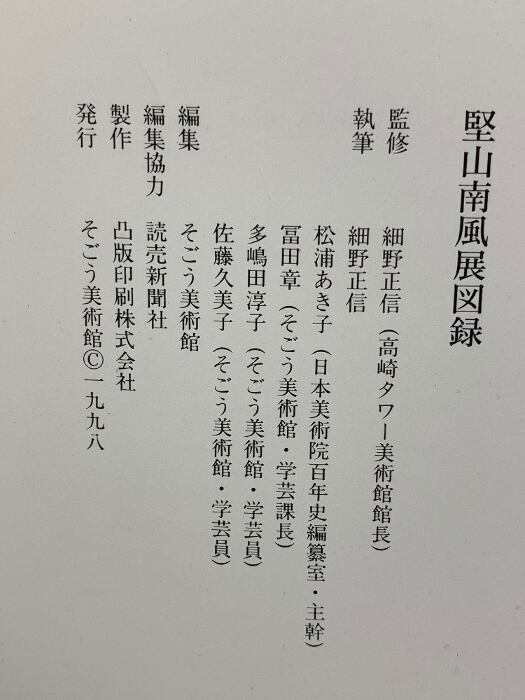 堅山南風展図録
監修 細野正信(高崎タワー美術館館長)
執筆 細野正信
松浦あき子(日本美術院百年史編纂室・主幹)
冨田章(そごう美術館・学芸課長)
多嶋田淳子(そごう美術館・学芸員)
佐藤久美子(そごう美術館・学芸員)
編集 そごう美術館
編集協力 読売新聞社
製作 凸版印刷株式会社
発行 そごう美術館©一九九八